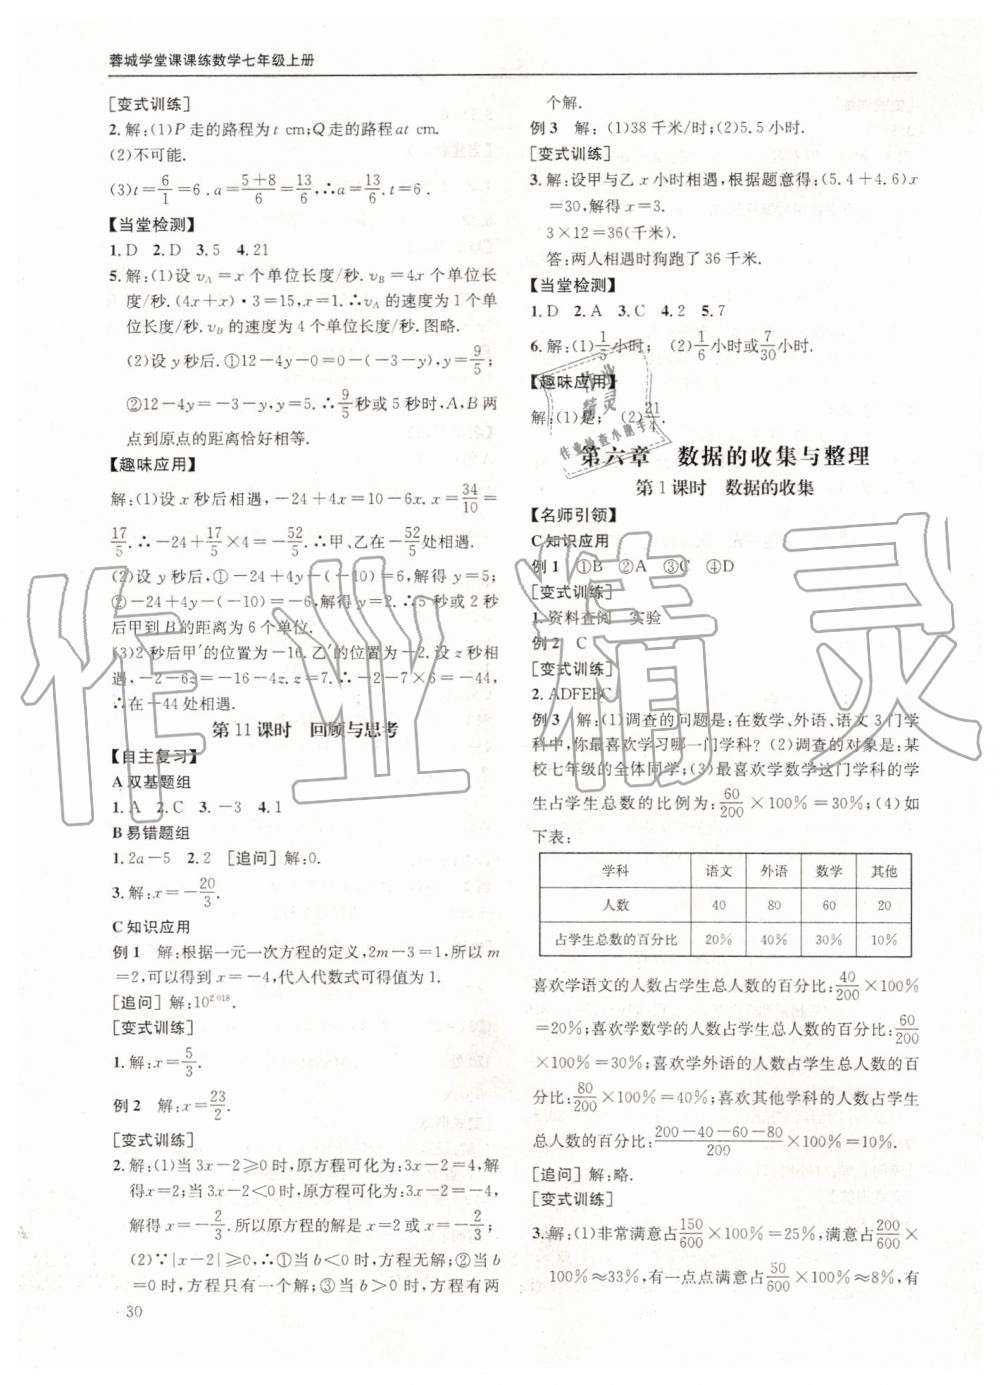 蓉城学堂课课练数学七年级上册
[变式训练]
2.解:(1)P走的路程为t cm;Q走的路程at cm.
(2)不可能.
(3)t=6/1=6.a=(5+8)/6=13/6,∴a=13/6.t=6.
【当堂检测】
1.D 2.D 3.5 4.21
5.解:(1)设v_A=x个单位长度/秒.v_B=4x个单位长
度/秒.(4x+x)·3=15,x=1.∴v_A的速度为1个单
位长度/秒.v_B的速度为4个单位长度/秒.图略.
(2)设y秒后.①12-4y-0=0-(-3-y),y=9/5;
②12-4y=-3-y.y=5.∴9/5秒或5秒时,A,B两
点到原点的距离恰好相等.
【趣味应用】
解:(1)设x秒后相遇,-24+4x=10-6x.x=34/10=
17/5.∴-24+17/5×4=-52/5.∴甲、乙在-52/5处相遇.
(2)设y秒后,①-24+4y-(-10)=6,解得y=5;
②-10-(-24+4y)=6,解得y=2.∴5秒或2秒
后甲到B的距离为6个单位.
(3)2秒后甲'的位置为-16.乙'的位置为-2.设z秒相
遇,-2-6z=-16-4z.z=7.∴-2-6×7=-44,
∴在-44处相遇.
第11课时 回顾与思考
【自主复习】
A双基题组
1.A 2.C 3.-3 4.1
B易错题组
1.2a-5 2.2 [追问]解:0.
3.解:x=-20/3.
C知识应用
例1 解:根据一元一次方程的定义,2m-3=1,所以m
=2,可以得到x=-4,代入代数式可得值为1.
[追问]解:10²⁰¹⁸.
[变式训练]
1.解:x=5/3.
例2 解:x=23/2.
[变式训练]
2.解:(1)当3x-2≥0时,原方程可化为:3x-2=4,解
得x=2;当3x-2<0时,原方程可化为:3x-2=-4,
解得x=-2/3.所以原方程的解是x=2或x=-2/3;
(2)∵|x-2|≥0,∴①当b<0时,方程无解;②当b
=0时,方程只有一个解;③当b>0时,方程有两
30
个解.
例3 解:(1)38千米/时;(2)5.5小时.
[变式训练]
3.解:设甲与乙x小时相遇,根据题意得:(5.4+4.6)x
=30,解得x=3.
3×12=36(千米).
答:两人相遇时狗跑了36千米.
【当堂检测】
1.D 2.A 3.C 4.2 5.7
6.解:(1)1/5小时; (2)1/6小时或7/30小时.
【趣味应用】
解:(1)是; (2)21/4.
第六章 数据的收集与整理
第1课时 数据的收集
【名师引领】
C知识应用
例1 ①B ②A ③C ④D
[变式训练]
1.资料查阅 实验
例2 C
[变式训练]
2.ADFEBC
例3 解:(1)调查的问题是:在数学、外语、语文3门学
科中,你最喜欢学习哪一门学科?(2)调查的对象是:某
校七年级的全体同学;(3)最喜欢学数学这门学科的学
生占学生总数的比例为:60/200×100%=30%;(4)如
下表:
学科 语文 外语 数学 其他
人数 40 80 60 20
占学生总数的百分比 20% 40% 30% 10%
喜欢学语文的人数占学生总人数的百分比:40/200×100%
=20%;喜欢学数学的人数占学生总人数的百分比:60/200
×100%=30%;喜欢学外语的人数占学生总人数的百
分比:80/200×100%=40%;喜欢其他学科的人数占学生
总人数的百分比:(200-40-60-80)/200×100%=10%.
[追问]解:略.
[变式训练]
3.解:(1)非常满意占150/600×100%=25%,满意占200/600×
100%≈33%,有一点点满意占50/600×100%≈8%,有
作业精灵
作业检查小助手